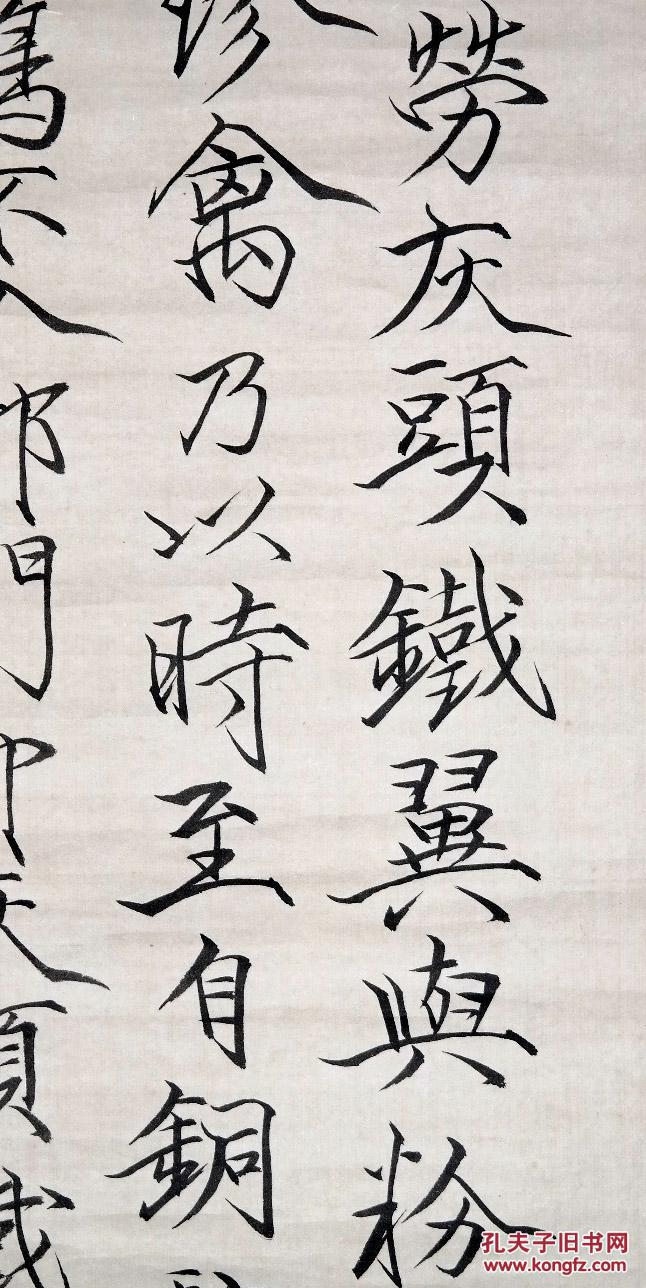 勞灰頭鐵翼與粉
珍禽乃以時至自銅
不入
門中天頂戴
孔夫子旧书网
www.kongfz.com